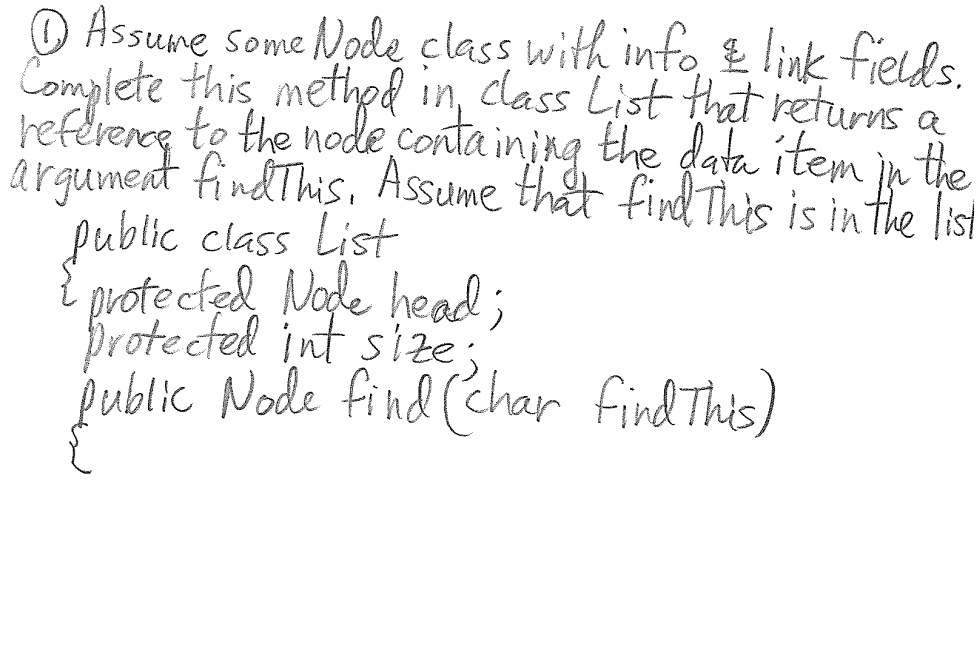 ① Assume some Node class with info & link fields.
Complete this method in class List that returns a
reference to the node containing the data item in the
argument findThis. Assume that findThis is in the list
public class List
{ protected Node head;
protected int size;
public Node find (char findThis)
{